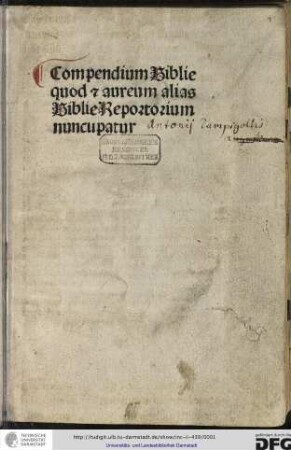 Compendium Biblie
quod ⁊ aureum alias
Biblie Reportorium
nuncupatur
Antonij Rampigollis
http://tudigit.ulb.tu-darmstadt.de/show/inc-ii-439/0001
Universitäts- und Landesbibliothek Darmstadt
TECHNISCHE
UNIVERSITÄT
DARMSTADT
gefördert durch die
DFG